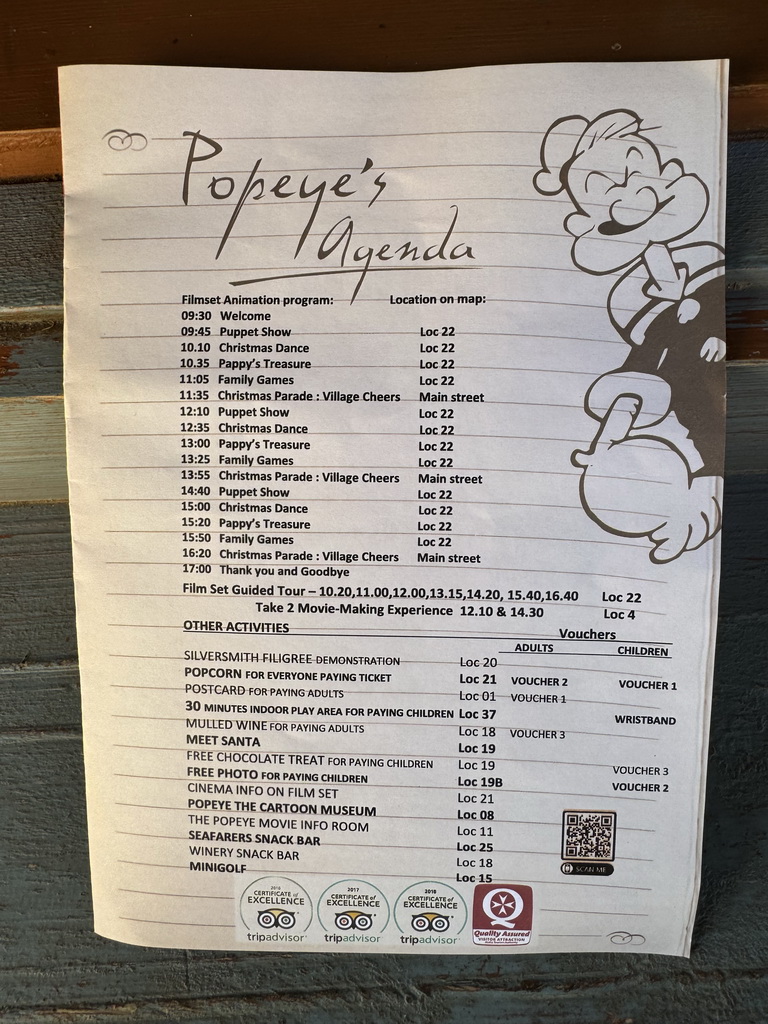 Popeye's
Agenda
Filmset Animation program: Location on map:
09:30 Welcome
09:45 Puppet Show Loc 22
10.10 Christmas Dance Loc 22
10.35 Pappy's Treasure Loc 22
11:05 Family Games Loc 22
11:35 Christmas Parade : Village Cheers Main street
12:10 Puppet Show Loc 22
12:35 Christmas Dance Loc 22
13:00 Pappy's Treasure Loc 22
13:25 Family Games Loc 22
13:55 Christmas Parade : Village Cheers Main street
14:40 Puppet Show Loc 22
15:00 Christmas Dance Loc 22
15:20 Pappy's Treasure Loc 22
15:50 Family Games Loc 22
16:20 Christmas Parade : Village Cheers Main street
17:00 Thank you and Goodbye
Film Set Guided Tour – 10.20,11.00,12.00,13.15,14.20, 15.40,16.40 Loc 22
Take 2 Movie-Making Experience 12.10 & 14.30 Loc 4
OTHER ACTIVITIES Vouchers
ADULTS CHILDREN
SILVERSMITH FILIGREE DEMONSTRATION Loc 20
POPCORN FOR EVERYONE PAYING TICKET Loc 21 VOUCHER 2 VOUCHER 1
POSTCARD FOR PAYING ADULTS Loc 01 VOUCHER 1
30 MINUTES INDOOR PLAY AREA FOR PAYING CHILDREN Loc 37 WRISTBAND
MULLED WINE FOR PAYING ADULTS Loc 18 VOUCHER 3
MEET SANTA Loc 19
FREE CHOCOLATE TREAT FOR PAYING CHILDREN Loc 19 VOUCHER 3
FREE PHOTO FOR PAYING CHILDREN Loc 19B VOUCHER 2
CINEMA INFO ON FILM SET Loc 21
POPEYE THE CARTOON MUSEUM Loc 08
THE POPEYE MOVIE INFO ROOM Loc 11
SEAFARERS SNACK BAR Loc 25
WINERY SNACK BAR Loc 18
MINIGOLF Loc 15
SCAN ME
2016 CERTIFICATE of EXCELLENCE tripadvisor
2017 CERTIFICATE of EXCELLENCE tripadvisor
2018 CERTIFICATE of EXCELLENCE tripadvisor
Quality Assured
VISITOR ATTRACTION